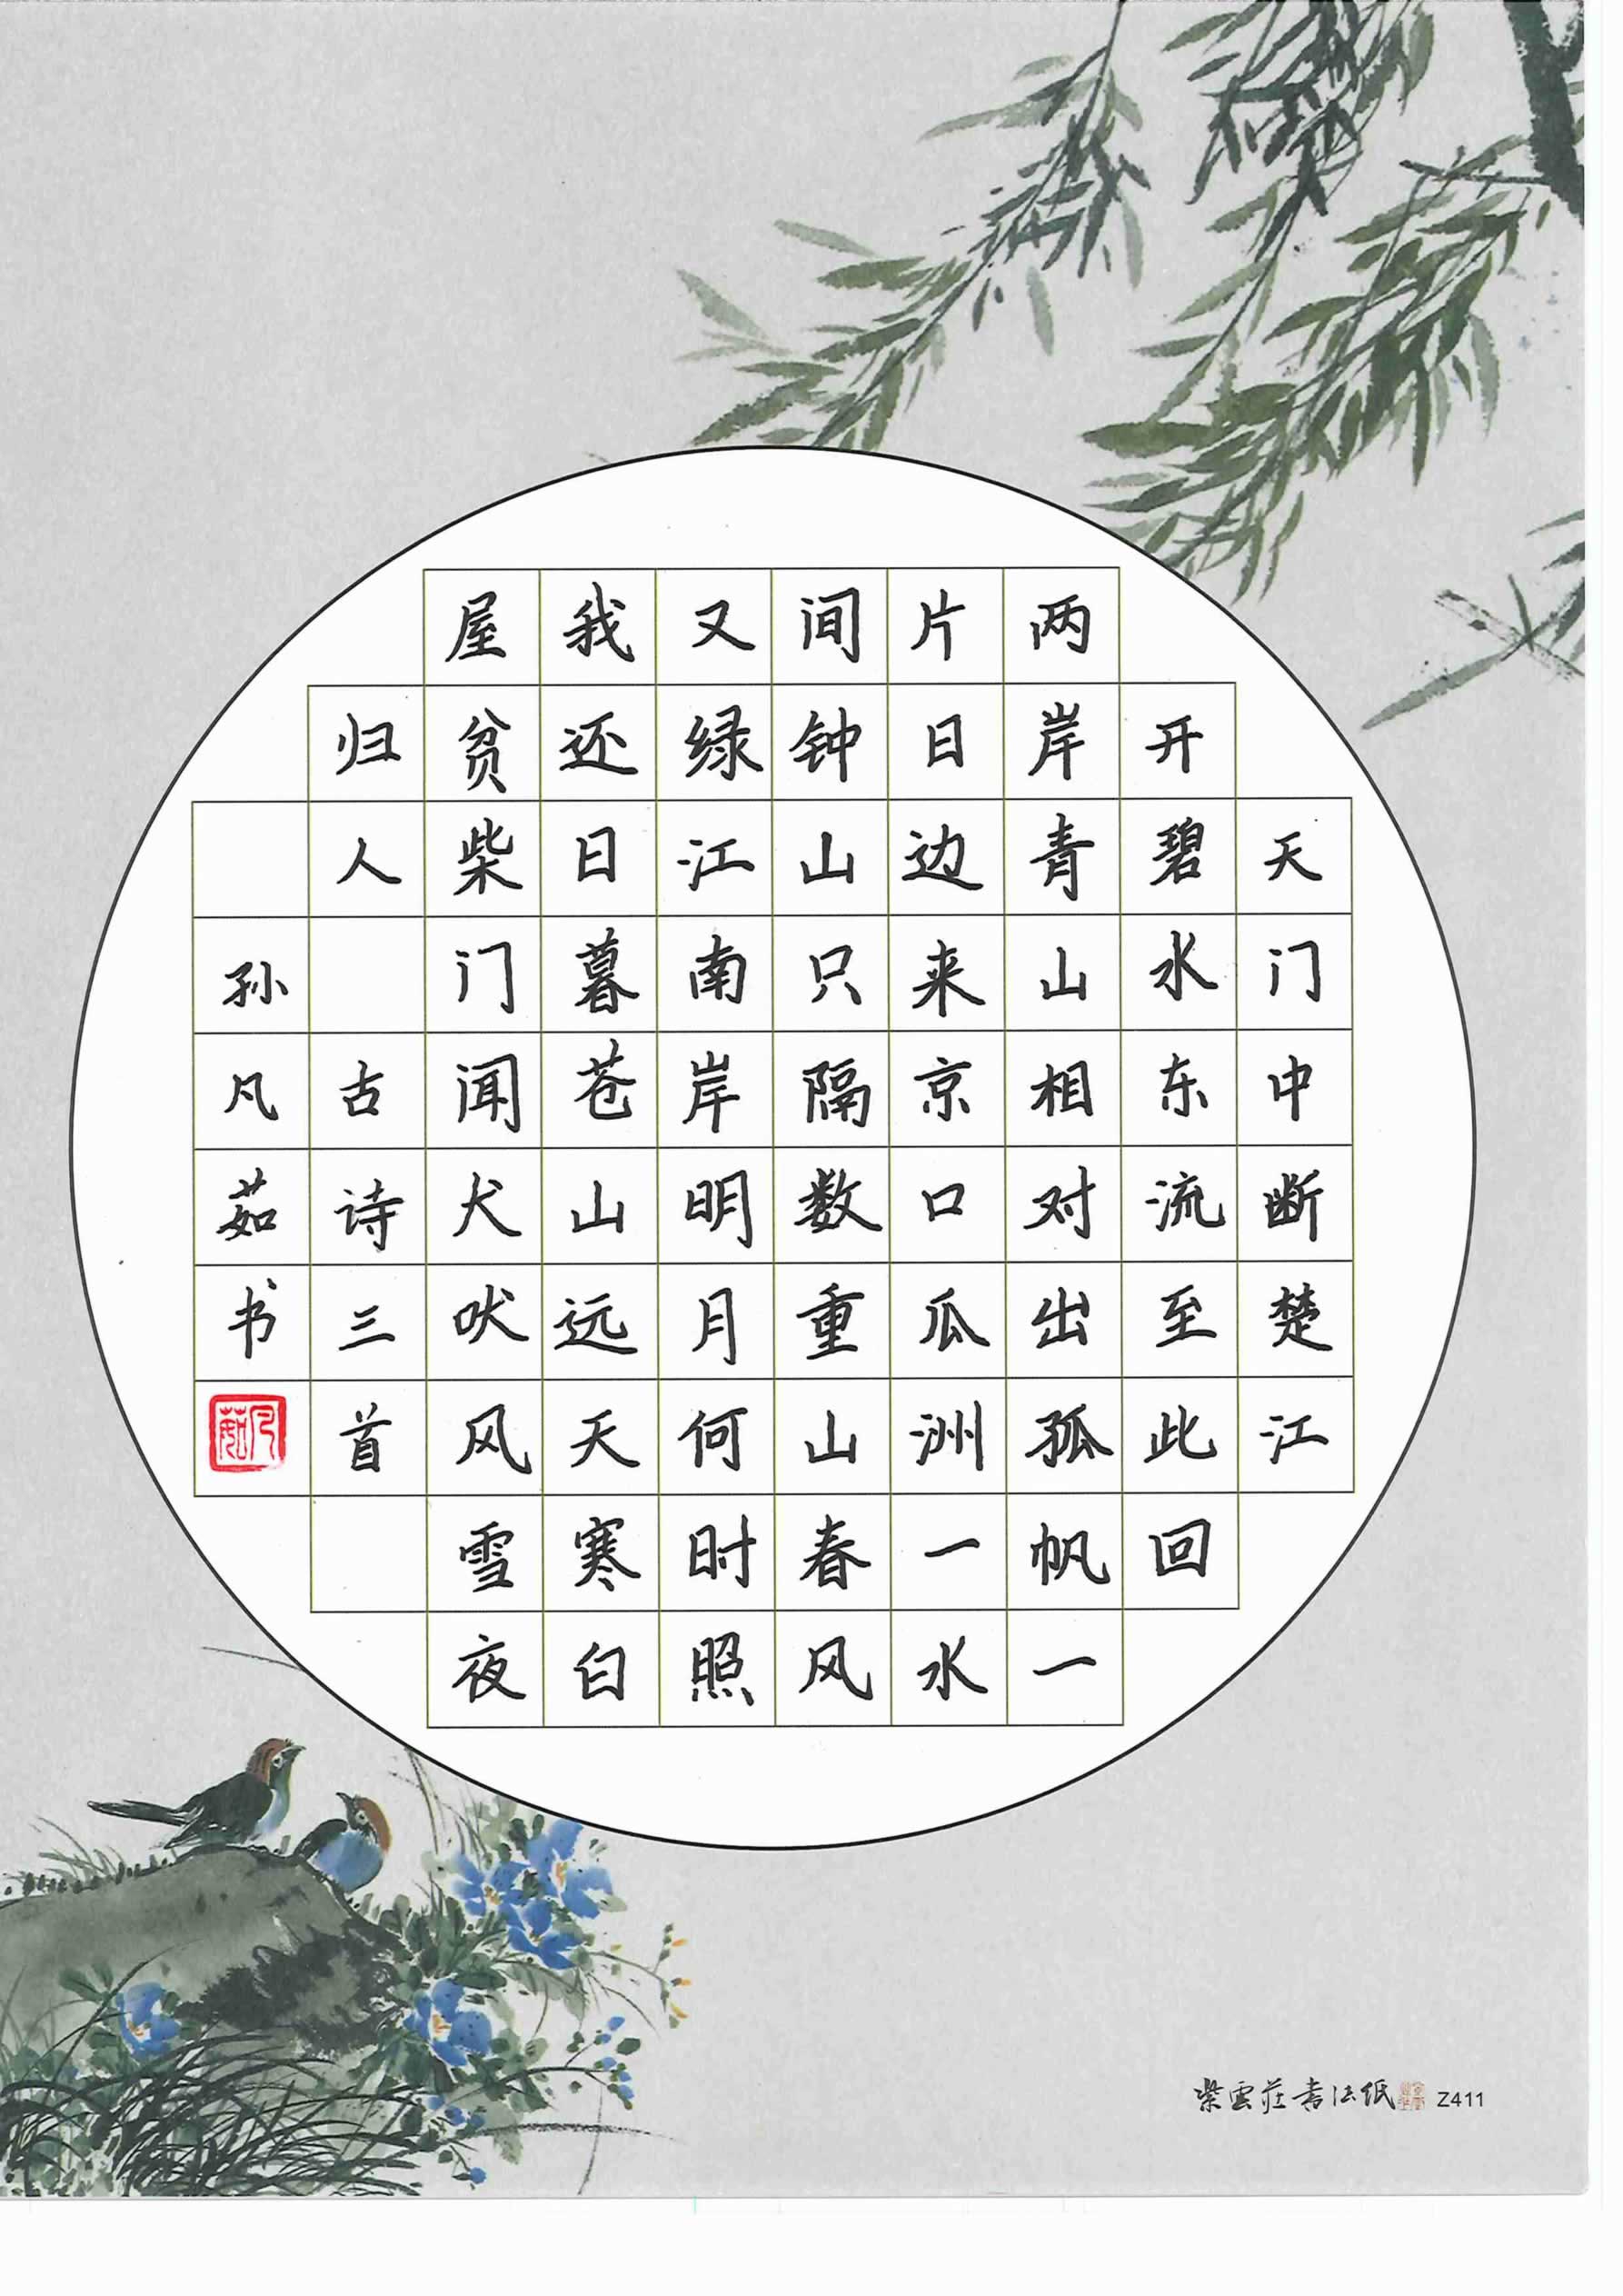 天门中断楚江
开碧水东流至此回
两岸青山相对出孤帆一
片日边来京口瓜洲一水
间钟山只隔数重山春风
又绿江南岸明月何时照
我还日暮苍山远天寒白
屋贫柴门闻犬吠风雪夜
归人 古诗三首
孙凡茹书
凡茹
紫雲莊書法纸 Z411